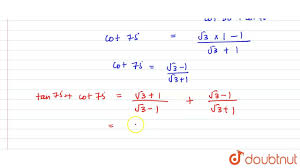 cot 75 = √3 × 1 - 1 / √3 + 1
cot 75 = √3-1 / √3+1
tan 75 + cot 75 = √3 + 1 / √3 - 1 + √3 - 1 / √3 + 1
=
doubtnut